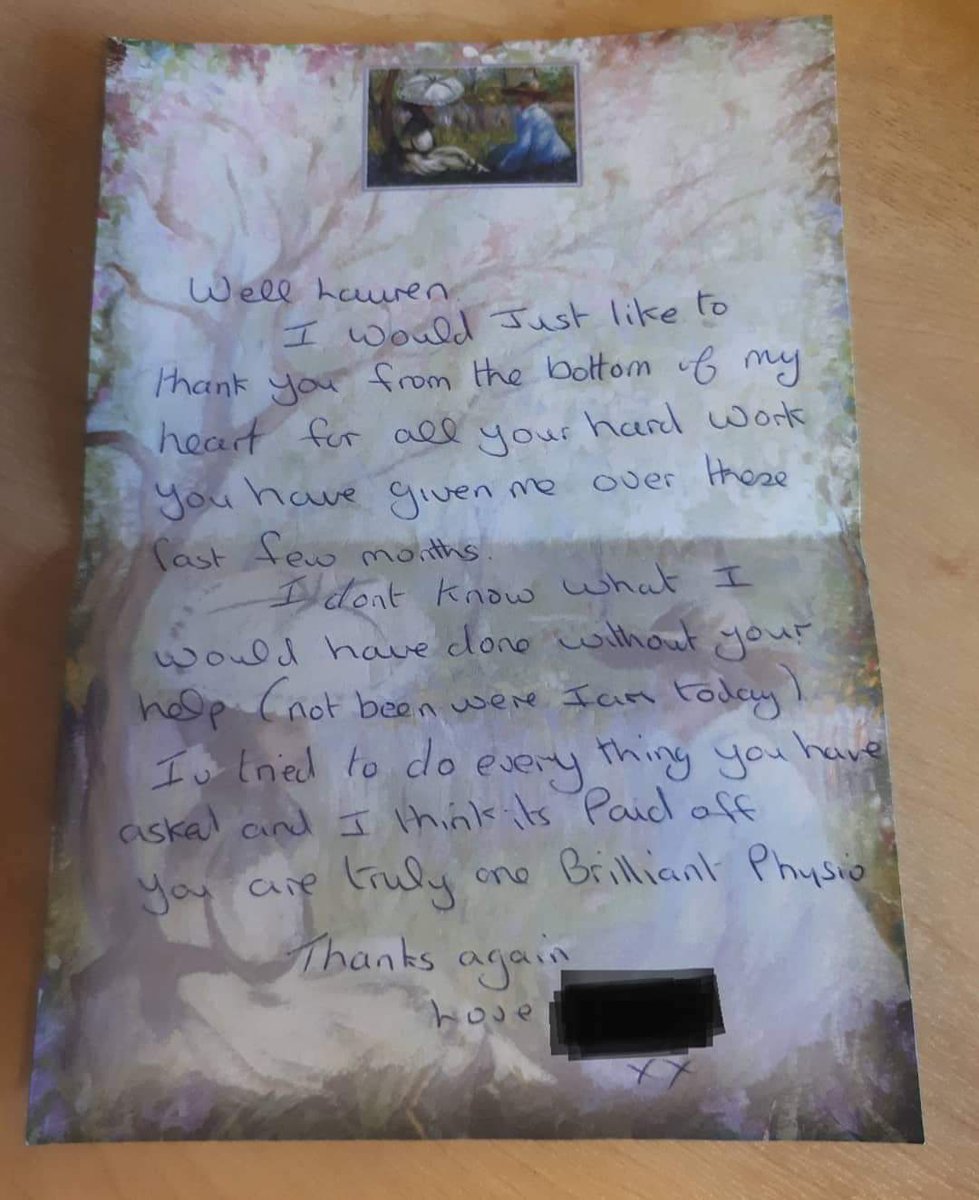 Well Lauren.
I would Just like to
thank you from the bottom of my
heart for all your hard work
you have given me over these
last few months.
I dont know what I
would have done without your
help (not been were I am today)
Iv tried to do every thing you have
asked and I think its Paid off
you are truly one Brilliant Physio
Thanks again
Love
xx